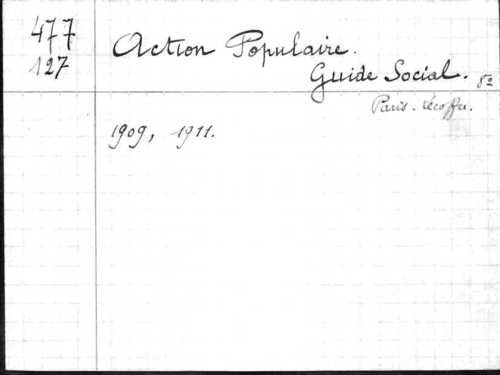 477
127
Action Populaire.
Guide Social. 8º
Paris. Lecoffre.
1909, 1911.